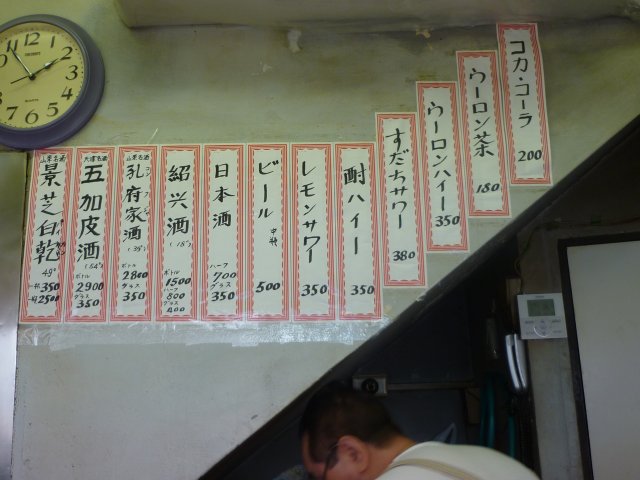 コカ・コーラ
200
ウーロン茶
180
ウーロンハイー
350
すだちサワー
380
酎ハイー
350
レモンサワー
350
ビール 中ビン
500
日本酒
ハーフ
700
グラス
350
紹兴酒
(18°)
ボトル
1500
ハーフ
800
グラス
400
山東名酒
孔府家酒
(39°)
ボトル
2800
グラス
350
天津名酒
五加皮酒
(54°)
ボトル
2900
グラス
350
山東名酒
景芝白乾
49°
一杯 350
2500
12
1
2
3
4
5
6
7
8
9